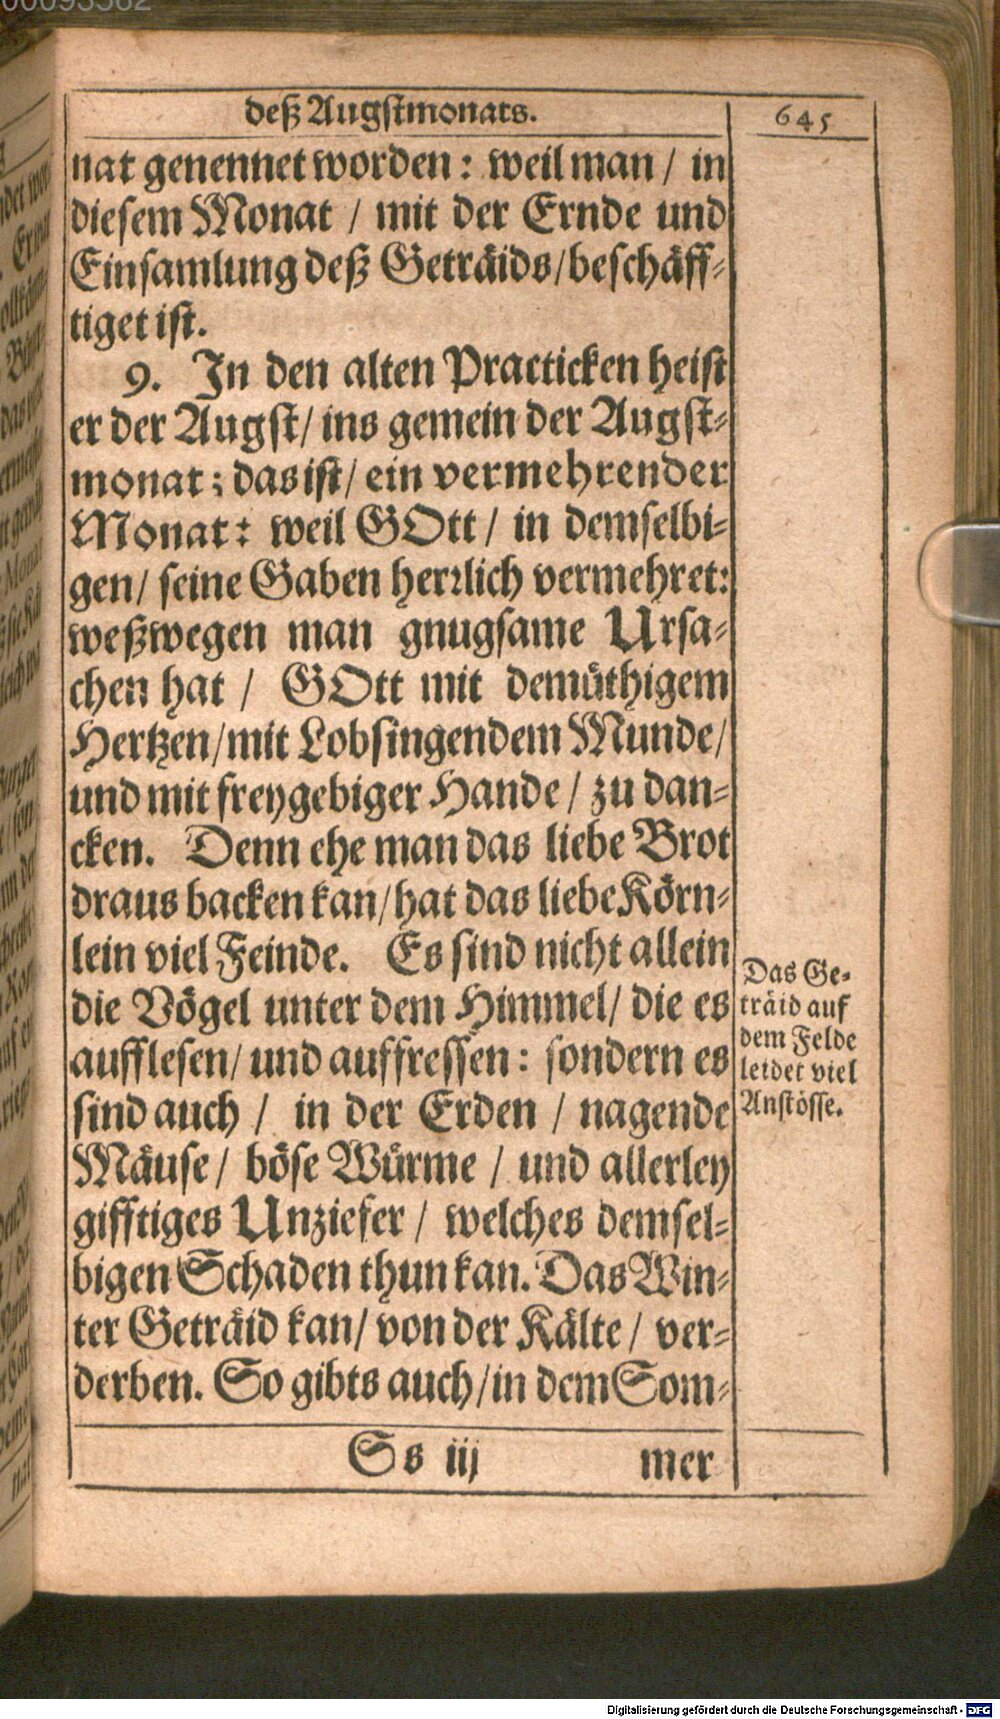 deß Augstmonats.
645
nat genennet worden: weil man / in
diesem Monat / mit der Ernde und
Einsamlung deß Geträids / beschäff-
tiget ist.
9. In den alten Practicken heist
er der Augst / ins gemein der Augst-
monat; das ist / ein vermehrender
Monat: weil GOtt / in demselbi-
gen / seine Gaben herrlich vermehret:
weßwegen man gnugsame Ursa-
chen hat / GOtt mit demüthigem
Hertzen / mit Lobsingendem Munde /
und mit freygebiger Hande / zu dan-
cken. Denn ehe man das liebe Brot
draus backen kan / hat das liebe Körn-
lein viel Feinde. Es sind nicht allein
die Vögel unter dem Himmel / die es
aufflesen / und auffressen: sondern es
sind auch / in der Erden / nagende
Mäuse / böse Würme / und allerley
gifftiges Unziefer / welches demsel-
bigen Schaden thun kan. Das Win-
ter Geträid kan / von der Kälte / ver-
derben. So gibts auch / in dem Som-
Das Ge-
träid auf
dem Felde
leidet viel
Anstösse.
Ss iij
mer
Digitalisierung gefördert durch die Deutsche Forschungsgemeinschaft - DFG